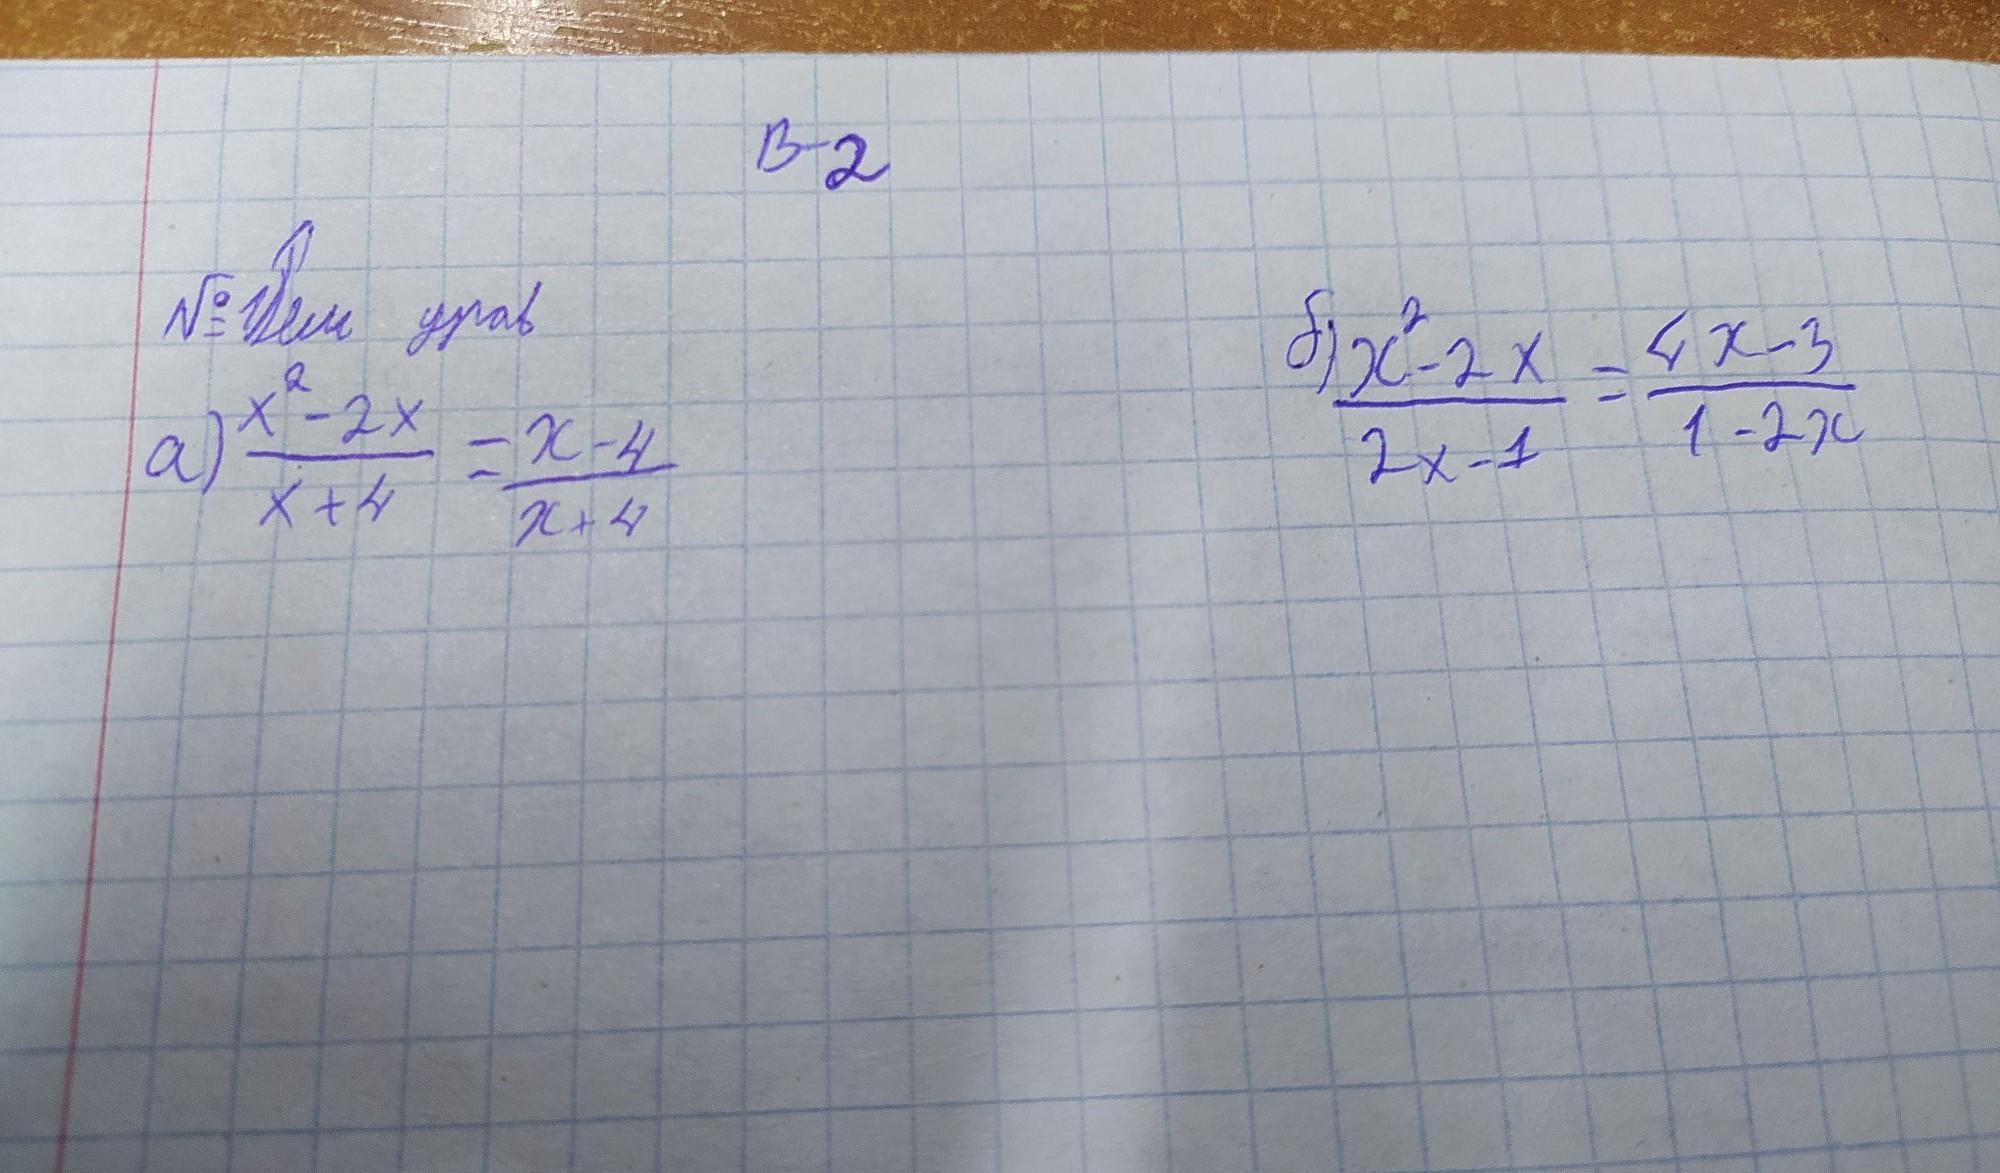 В-2
№1 Реш урав
а) x²-2x / x+4 = x-4 / x+4
б) x²-2x / 2x-1 = 4x-3 / 1-2x